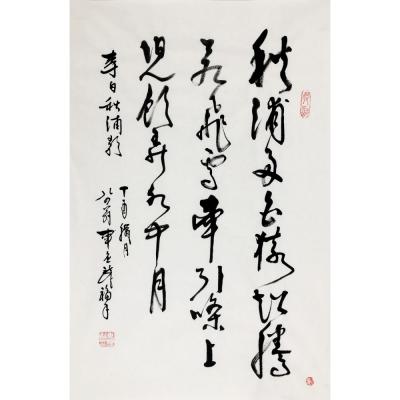 秋浦多白猿超騰
若飛雪牽引條上
兒飲弄水中月
李白秋浦歌
丁酉臘月